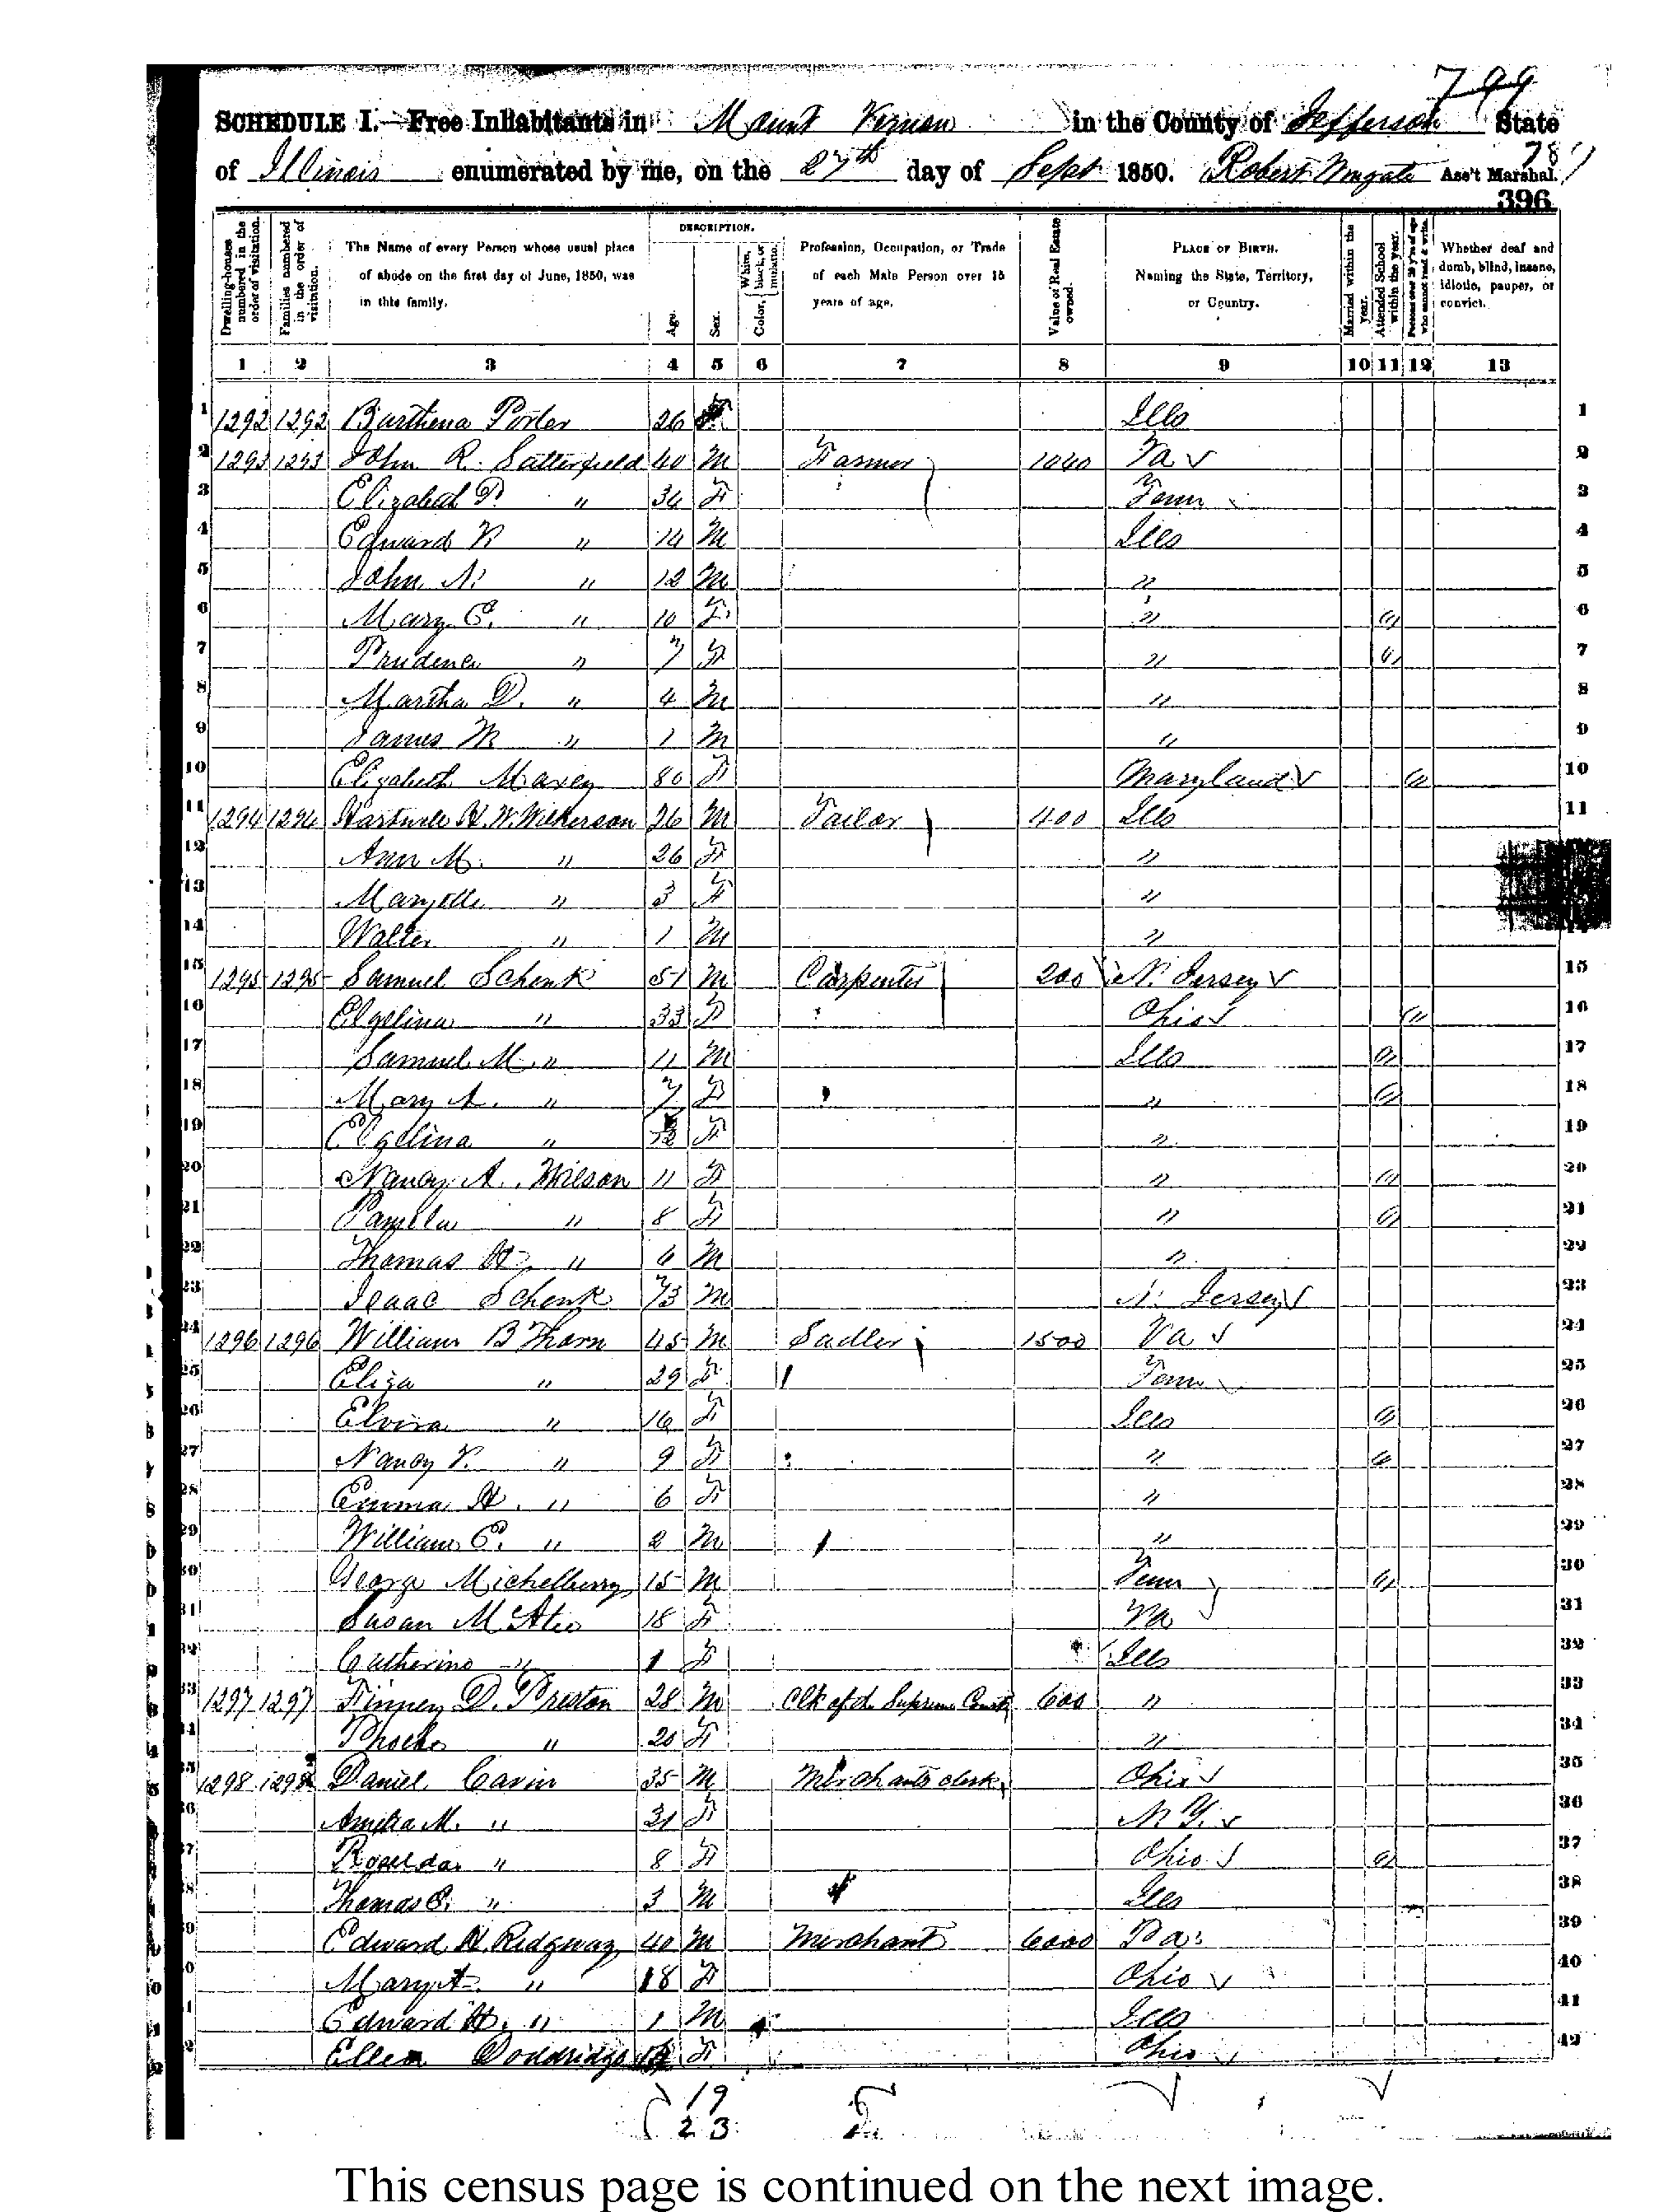 799
SCHEDULE I.—Free Inhabitants in Mount Vernon in the County of Jefferson State
of Illinois enumerated by me, on the 27th day of Sept 1850. Robert Wingate Ass't Marshal.
396
Dwelling-houses numbered in the order of visitation. Families numbered in the order of visitation. The Name of every Person whose usual place of abode on the first day of June, 1850, was in this family. DESCRIPTION. Age. Sex. Color, White, black, or mulatto. Profession, Occupation, or Trade of each Male Person over 15 years of age. Value of Real Estate owned. PLACE OF BIRTH. Naming the State, Territory, or Country. Married within the year. Attended School within the year. Persons over 20 y'rs of age who cannot read & write. Whether deaf and dumb, blind, insane, idiotic, pauper, or convict.
1 2 3 4 5 6 7 8 9 10 11 12 13
1 1292 1292 Barthena Porter 26 F Ills 1
2 1293 1293 John R. Satterfield 40 M Farmer 1040 Va 2
3 Elizabeth P. " 34 F Tenn 3
4 Edward R " 14 M Ills 4
5 John N. " 12 M " 5
6 Mary C. " 10 F " " 6
7 Prudence " 7 F " " 7
8 Martha D. " 4 M " 8
9 James M " 1 M " 9
10 Elizabeth Maxey 80 F Maryland " 10
11 1294 1294 Hartwell H. W. Wilkerson 26 M Tailor 400 Ills 11
12 Ann M. " 26 F "
13 Maryette " 3 F "
14 Walter " 1 M "
15 1295 1295 Samuel Schenk 51 M Carpenter 200 N. Jersey 15
16 Elgelina " 33 F Ohio " 16
17 Samuel M. " 11 M Ills " 17
18 Mary A. " 7 F " " 18
19 Elgelina " F " 19
20 Nancy A. Wilson 11 F " " 20
21 Pamela " 8 F " " 21
22 Thomas H. " 6 M " 22
23 Isaac Schenk 73 M N. Jersey 23
24 1296 1296 William B Thorn 45 M Sadler 1500 Va 24
25 Eliza " 29 F Tenn 25
26 Elvira " 16 F Ills " 26
27 Nancy V. " 9 F " " 27
28 Emma H. " 6 F " 28
29 William C. " 2 M " 29
30 George Michelberry 15 M Tenn " 30
31 Susan M Atee 18 F Va 31
32 Catherine " 1 F Ills 32
33 1297 1297 Finney D. Preston 28 M Clk of the Supreme Court 600 " 33
34 Phoebe " 20 F " 34
35 1298 1298 Daniel Cavin 35 M Merchants clerk Ohio 35
36 Amelia M. " 31 F N Y. 36
37 Roselda " 8 F Ohio " 37
38 Thomas S. " 3 M Ills 38
39 Edward H. Ridgway 40 M Merchant 6000 Pa 39
40 Mary A. " 18 F Ohio 40
41 Edward H. " 1 M Ills 41
42 Ellen Doddridge F Ohio 42
19
23
This census page is continued on the next image.